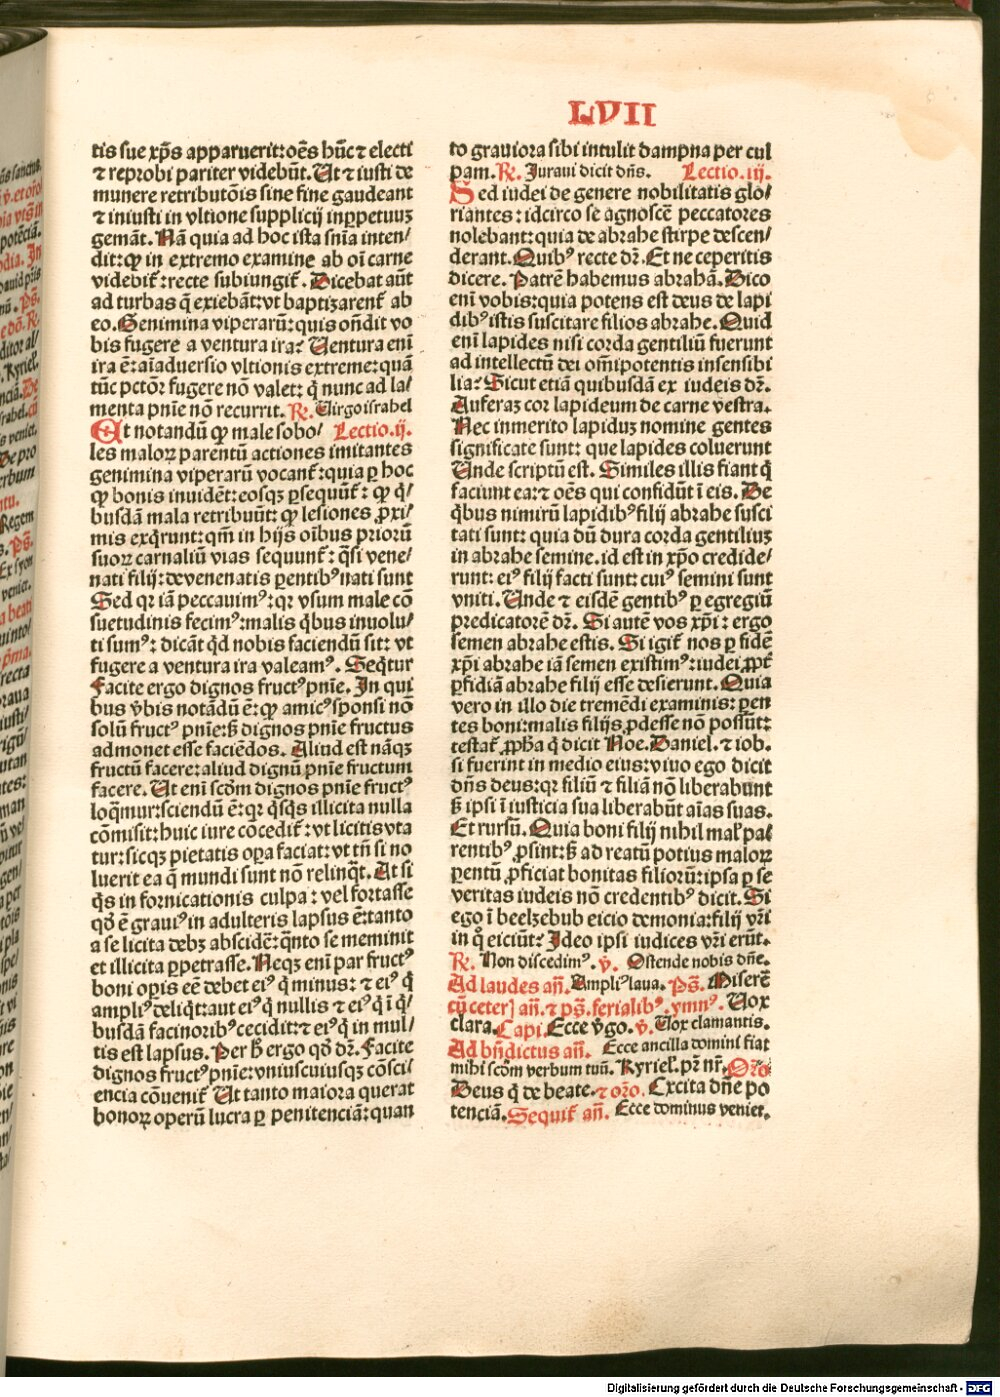 LVII
tis sue xp̄s apparuerit: oēs hūc ⁊ electi
⁊ reprobi pariter videbūt. Ut ⁊ iusti de
munere retributōis sine fine gaudeant
⁊ iniusti in vltione supplicij inꝑpetuuꝫ
gemāt. Nā quia ad hoc ista sn̄ia inten/
dit: ꝙ in extremo examine ab oī carne
videbit᷑: recte subiungit᷑. Dicebat aūt
ad turbas q̄ exiebāt: vt baptizarent᷑ ab
eo. Genimina viperarū: quis on̄dit vo
bis fugere a ventura ira? Ventura enī
ira ē: aīaduersio vltionis extreme: quā
tūc pctōr fugere nō valet: q̄ nunc ad la/
menta pnīe nō recurrit. R̄. Virgo israhel
Et notandū ꝙ male sobo/ Lectio.ij.
les maloꝝ parentū actiones imitantes
genimina viperarū vocant᷑: quia ꝑ hoc
ꝙ bonis inuidēt: eosqꝫ ꝑsequūt᷑: ꝙ q̇/
busdā mala retribuūt: ꝙ lesiones ꝓxi/
mis exq̇runt: qm̄ in hijs oībus priorū
suoꝝ carnaliū vias sequunt᷑: q̄si vene/
nati filij: de venenatis ꝑentibꝰ nati sunt
Sed qꝛ iā peccauimꝰ: qꝛ vsum male cō
suetudinis fecimꝰ: malis q̇bus inuolu/
ti sumꝰ: dicāt q̇d nobis faciendū sit: vt
fugere a ventura ira valeamꝰ. Seq̇tur
Facite ergo dignos fructꝰ pnīe. In qui
bus v̄bis notādū ē: ꝙ amicꝰ sponsi nō
solū fructꝰ pnīe: ß dignos pnīe fructus
admonet esse faciēdos. Aliud est nāqꝫ
fructū facere: aliud dignū pnīe fructum
facere. Ut enī scd̄m dignos pnīe fructꝰ
loq̄mur: sciendū ē: qꝛ q̇sq̇s illicita nulla
cōmisit: huic iure cōcedit᷑: vt licitis vta
tur: sicqꝫ pietatis oꝑa faciat: vt tn̄ si no
luerit ea q̄ mundi sunt nō relinq̇t. At si
q̇s in fornicationis culpa: vel fortasse
qd̄ ē grauiꝰ in adulteris lapsus ē: tanto
a se licita debꝫ abscidē: q̄nto se meminit
et illicita ꝑpetrasse. Neqꝫ enī par fructꝰ
boni opis eē debet eiꝰ q̇ minus: ⁊ eiꝰ q̇
ampliꝰ deliq̇t: aut eiꝰ q̇ nullis ⁊ eiꝰ q̇ ī q̇/
busdā facinoribꝰ cecidit: ⁊ eiꝰ q̇ in mul/
tis est lapsus. Per h̄ ergo qd̄ dr̄. Facite
dignos fructꝰ pnīe: vniuscuiusqꝫ cōsci/
encia cōuenit᷑ Ut tanto maiora querat
bonoꝝ operū lucra ꝑ penitenciā: quan
to grauiora sibi intulit dampna per cul
pam. R̄. Iuraui dicit dn̄s. Lectio.iij.
Sed iudei de genere nobilitatis glo/
riantes: idcirco se agnoscē peccatores
nolebant: quia de abrahe stirpe descen/
derant. Quibꝰ recte dr̄. Et ne ceperitis
dicere. Patrē habemus abrahā. Dico
enī vobis: quia potens est deus de lapi
dibꝰ istis suscitare filios abrahe. Quid
enī lapides nisi corda gentiliū fuerunt
ad intellectū dei om̄ipotentis insensibi
lia? Sicut etiā quibusdā ex iudeis dr̄.
Auferaꝫ cor lapideum de carne vestra.
Nec inmerito lapiduꝫ nomine gentes
significate sunt: que lapides coluerunt
Unde scriptū est. Similes illis fiant q̇
faciunt ea: ⁊ oēs qui confidūt ī eis. De
q̇bus nimirū lapidibꝰ filij abrahe susci
tati sunt: quia dū dura corda gentiliuꝫ
in abrahe semine. id est in xpō credide/
runt: eiꝰ filij facti sunt: cuiꝰ semini sunt
vniti. Unde ⁊ eisdē gentibꝰ ꝑ egregiū
p̄dicatorē dr̄. Si autē vos xp̄i: ergo
semen abrahe estis. Si igit᷑ nos ꝑ fidē
xp̄i abrahe iā semen existimꝰ: iudei ꝓpt᷑
ꝑfidiā abrahe filij esse desierunt. Quia
vero in illo die tremēdi examinis: ꝑen
tes boni: malis filijs ꝓdesse nō possūt:
testat᷑ ꝓph̄a q̇ dicit Noe. Daniel. ⁊ iob.
si fuerint in medio eius: viuo ego dicit
dn̄s deus: qꝛ filiū ⁊ filiā nō liberabunt
ß ipsi ī iusticia sua liberabūt aīas suas.
Et rursū. Quia boni filij nihil mal᷑ pa/
rentibꝰ ꝓsint: ß ad reatū potius maloꝝ
ꝑentū ꝓficiat bonitas filiorū: ipsa ꝑ se
veritas iudeis nō credentibꝰ dicit. Si
ego ī beelzebub eicio demonia: filij vr̄i
in q̊ eiciūt? Ideo ipsi iudices vr̄i erūt.
R̄. Non discedimꝰ. v̄. Ostende nobis dn̄e.
Ad laudes añ. Ampliꝰ laua. Ps̄. Miserē
cū ceterꝭ añ. ⁊ ps̄. ferialibꝰ. ymnꝰ. Uox
clara. Capi. Ecce v̄go. v̄. Uox clamantis.
Ad bn̄dictus añ. Ecce ancilla domini fiat
mihi scd̄m verbum tuū. Kyriel᷑. pr̄ nr̄. Oro
Deus q̇ de beate. ⁊ oro. Excita dn̄e po
tenciā. Sequit᷑ añ. Ecce dominus veniet.
Digitalisierung gefördert durch die Deutsche Forschungsgemeinschaft - DFG